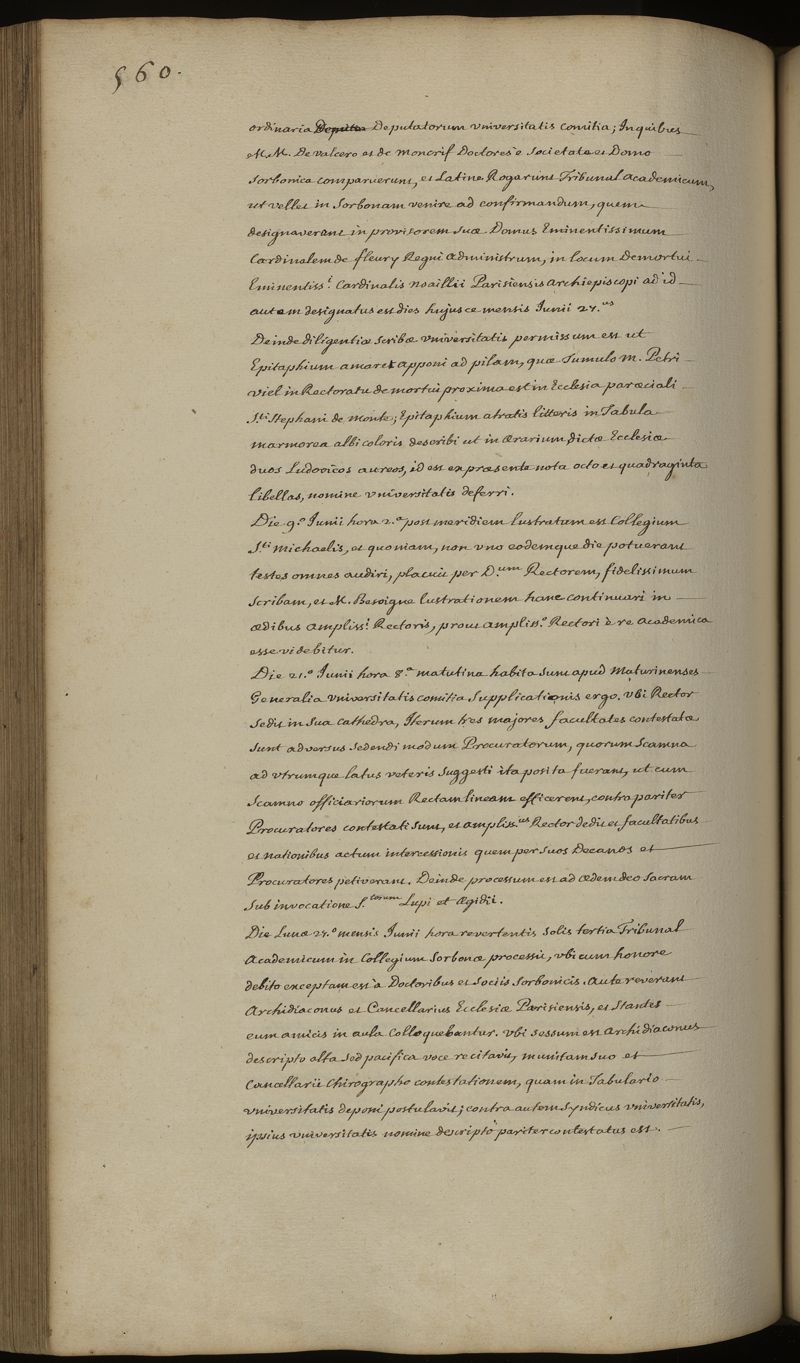 560.
ordinaria Deputatorum Vniversitatis comitia; In quibus
M.M. De Valcero et de Moncrif Doctores è Societate et Domo
Sorbonica comparuerunt, et Latine Rogarunt Tribunal Academicum,
ut vellet in Sorbonam venire ad confirmandum, quem
designaverant in provisorem suæ Domus Eminentissimum
Cardinalem de fleury Regni administrum, in locum Demortui
Eminentiss.i Cardinalis Noaillii Parisiensis Archiepiscopi ad id
autem designatus est dies hujusce mensis Junii 27.us
Deinde diligentiæ scribæ Vniversitatis permissum est ut
Epitaphium amaret apponi ad pilam, quæ Tumulo M. Petri
Viel in Rectoratu demortui proxima est in Ecclesia parœciali
S.ti Stephani de Monte; Epitaphium atratis litteris in Tabula
marmorea albi coloris describi ut in ærarium dictæ Ecclesiæ
duos Ludovicos aureos, id est ex præsente nota octo et quadraginta
libellas, nomine Vniversitatis deferri.
Die 9.º Junii hora 2.a post meridiem lustratum est Collegium
S.ti Michaelis, et quoniam, non uno eodemque die potuerant
testes omnes audiri, placuit per D.um Rectorem, fidelissimum
Scribam, et M. Besoigne lustrationem hanc continuari in
ædibus Ampliss.i Rectoris, prout Ampliss.o Rectori è re Academica
esse videbitur.
Die 21.º Junii hora 8.a matutina habita sunt apud Maturinenses
Generalia Vniversitatis comitia Supplicationis ergo. Vbi Rector
Sedit in sua cathedra, Iterum tres majores facultates contestatæ
sunt adversus sedendi modum Procuratorum, quorum Scamna
ad utrumque latus veteris Suggesti ita posita fuerant, ut cum
Scamno officiariorum Rectam lineam efficerent, contra pariter
Procuratores contestati sunt, et ampliss.us Rector dedit et facultatibus
et nationibus actum intercessionis quem per suos Decanos et
Procuratores petiverant. Deinde processum est ad ædem deo Sacram
Sub invocatione S.torum Lupi et Ægidii.
Die Lunæ 27.º mensis Junii hora revertentis solis tertia Tribunal
Academicum in Collegium Sorbonæ processit, vbi cum honore
debito exceptam est à Doctoribus et Sociis Sorbonicis. Ante reverant
Archidiaconus et Cancellarius Ecclesiæ Parisiensis, et Stantes
cum amicis in aula Colloquebantur. Vbi sessum est Archidiaconus
descripto alta sed pacifica voce recitavit, munitam suo et
Cancellarii Chirographo contestationem, quam in Tabulario
Vniversitatis deponi postulavit; contra autem Syndicus Vniversitatis,
ipsius Vniversitatis nomine descriptò pariter contestatus est.